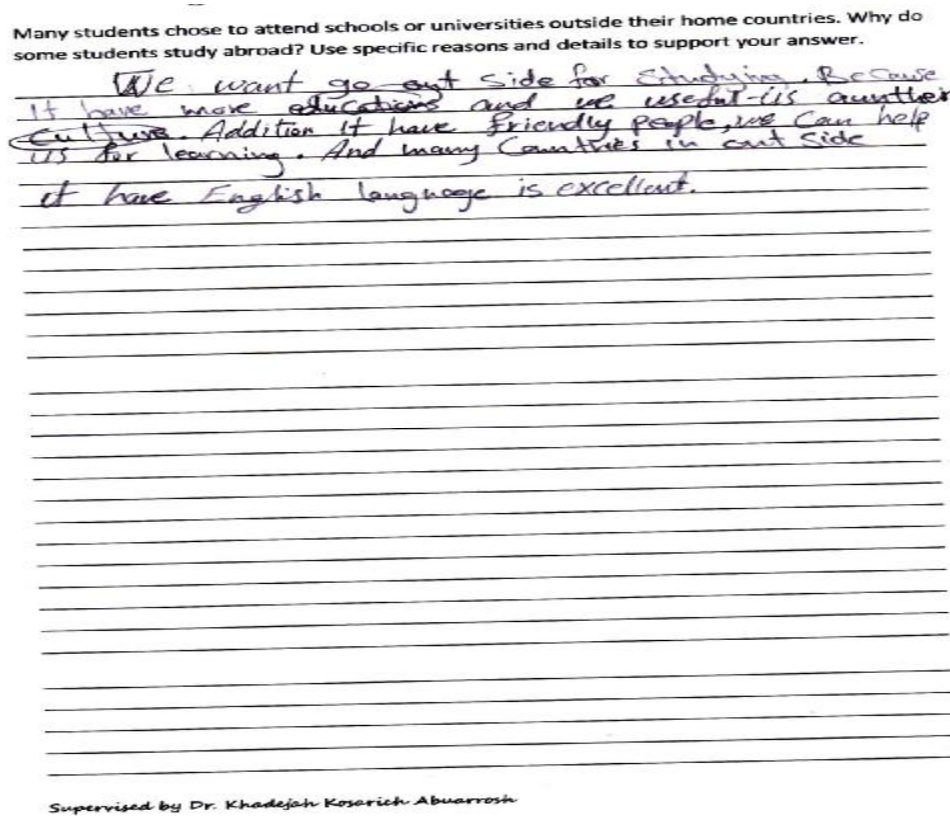 Many students chose to attend schools or universities outside their home countries. Why do
some students study abroad? Use specific reasons and details to support your answer.
We want go out side for Studying. Because
It have more educations and we useful-iis aunther
Culture. Addition it have friendly people, we Can help
us for learning. And many Countries in out Side
it have English language is excellent.
Supervised by Dr. Khadejah Kosarich Abuarrosh